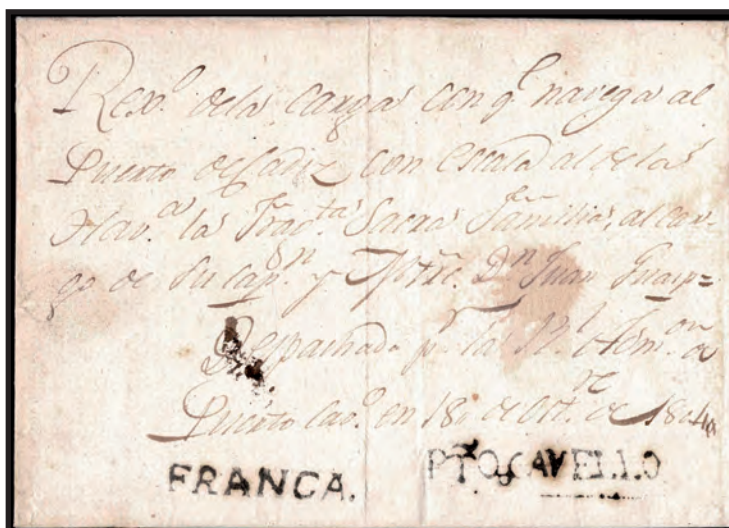 Rexº. dela carga con q.e navega al
Puerto de Cadiz con escala al dela
Hav.a la Frag.ta Sacra Familia, al car-
go de su cap.n y Mtre. D.n Juan
Despachada p.r la R.l Adm.on de
Puerto Cavº. en 18 de Oct.re de 1804
FRANCA. PTO,CAVELLO